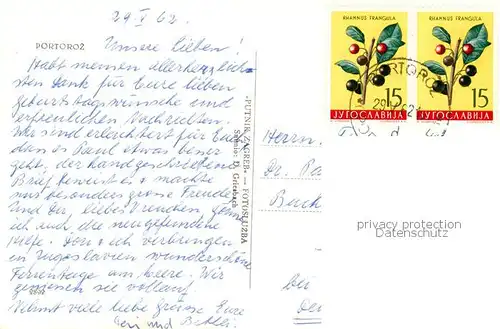 29. V 62.
PORTOROŽ
Unsere Lieben!
Habt meinen allerherzlich-
sten Dank für Eure lieben
Geburtstagswünsche und
erfreulichen Nachrichten.
Wir sind erleichtert für Euch
dass es Paul etwas besser
geht, der handgeschriebene
Brief beweist es, + machte
uns besonders grosse Freude.
Und Dir, liebes
ich auch die neugefundene
Hefe. Don + ich verbringen
in Jugoslavien wunderschöne
Ferientage am Meere. Wir
geniessen sie vollauf.
Nehmt viele liebe Grüsse Eure
und
»PUTNIK ZAGREB« — FOTOSLUŽBA
Snimio: D. Griesbach
RHAMNUS FRANGULA
15
JUGOSLAVIJA
RHAMNUS FRANGULA
15
ЈУГОСЛАВИЈА
PORTOROŽ
Herrn
Dr. Pa
Buch
bei
privacy protection
Datenschutz